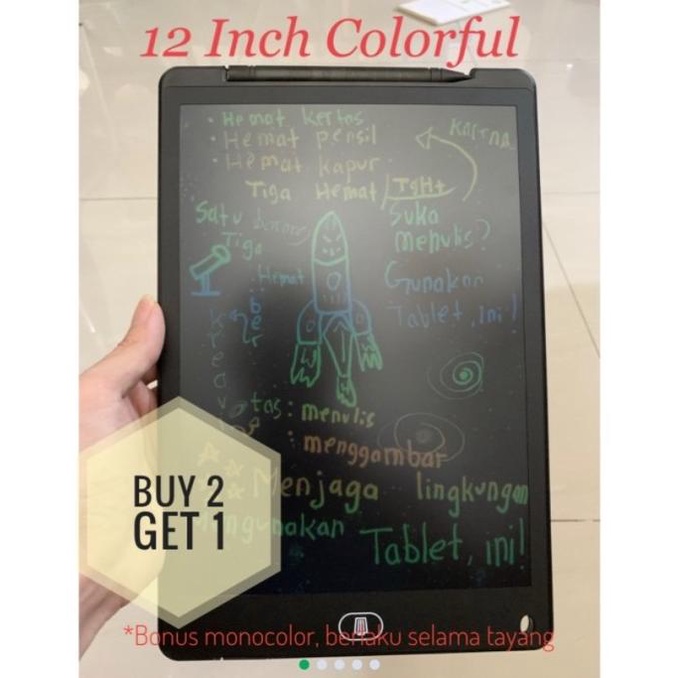 12 Inch Colorful
• Hemat kertas
• Hemat pensil
• Hemat kapur
Tiga Hemat
Satu
Tiga
Hemat
Suka
menulis?
Gunakan
Tablet, ini!
: menulis
: menggambar
Menjaga lingkungan
Tablet, ini!
BUY 2
GET 1
*Bonus monocolor, berlaku selama tayang